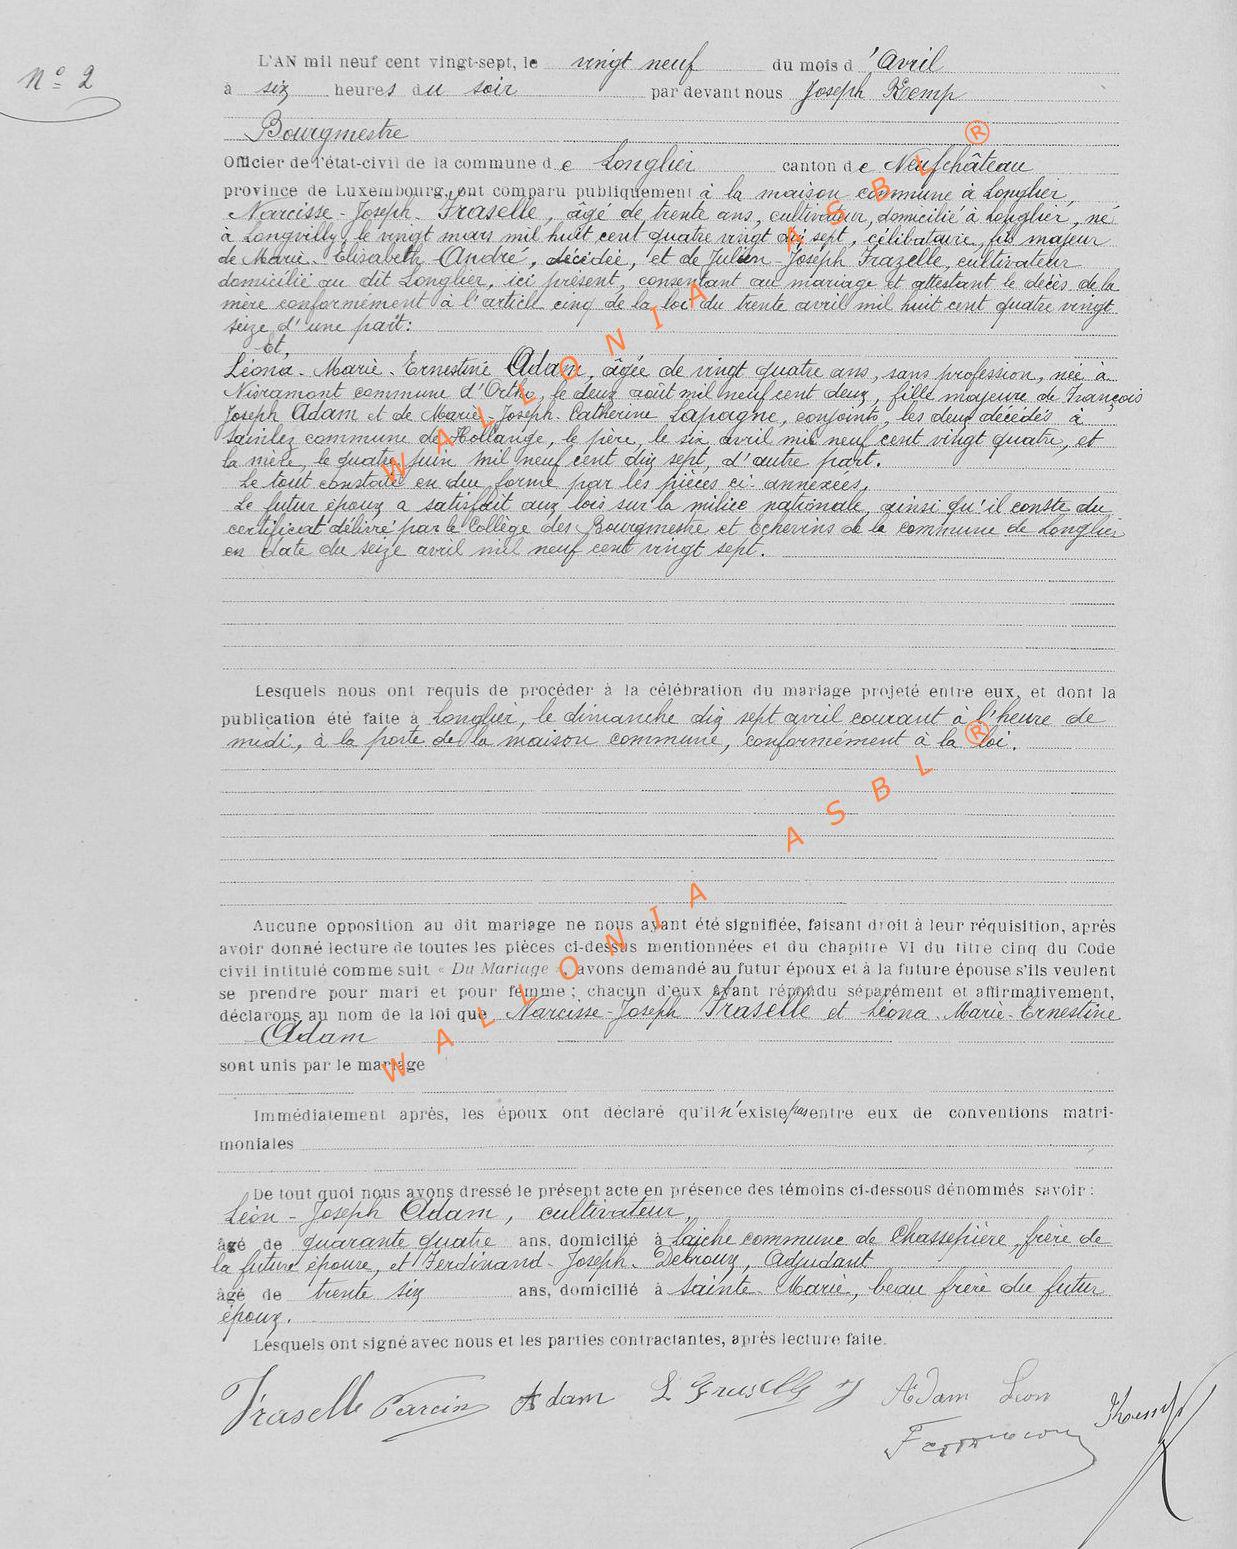 N° 2
L'AN mil neuf cent vingt-sept, le vingt neuf du mois d'Avril
à six heures du soir par devant nous Joseph Kemp
Bourgmestre
Officier de l'état-civil de la commune de Longlier canton de Neufchâteau
province de Luxembourg, ont comparu publiquement à la maison commune à Longlier,
Narcisse-Joseph-Fraselle, âgé de trente ans, cultivateur, domicilié à Longlier, né
à Longvilly, le vingt mars mil huit cent quatre vingt dix sept, célibataire, fils majeur
de Marie-Elisabeth André, décédée, et de Julien-Joseph Frazelle, cultivateur
domicilié au dit Longlier, ici présent, consentant au mariage et attestant le décès de la
mère conformément à l'article cinq de la loi du trente avril mil huit cent quatre vingt
seize d'une part:
Et,
Léona-Marie-Ernestine Adam, âgée de vingt quatre ans, sans profession, née à
Nisramont commune d'Ortho, le deux août mil neuf cent deux, fille majeure de François
Joseph Adam et de Marie-Joseph-Catherine Lapagne, conjoints, les deux décédés à
Sainlez commune de Hollange, le père, le six avril mil neuf cent vingt quatre, et
la mère, le quatre juin mil neuf cent dix sept, d'autre part.
Le tout constaté en due forme par les pièces ci-annexées.
Le futur époux a satisfait aux lois sur la milice nationale, ainsi qu'il conste du
certificat délivré par le Collège des Bourgmestre et Echevins de la commune de Longlier
en date du seize avril mil neuf cent vingt sept.
Lesquels nous ont requis de procéder à la célébration du mariage projeté entre eux, et dont la
publication été faite à Longlier, le dimanche dix sept avril courant à l'heure de
midi, à la porte de la maison commune, conformément à la loi.
Aucune opposition au dit mariage ne nous ayant été signifiée, faisant droit à leur réquisition, après
avoir donné lecture de toutes les pièces ci-dessus mentionnées et du chapitre VI du titre cinq du Code
civil intitulé comme suit « Du Mariage », avons demandé au futur époux et à la future épouse s'ils veulent
se prendre pour mari et pour femme; chacun d'eux ayant répondu séparément et affirmativement,
déclarons au nom de la loi que Narcisse-Joseph Fraselle et Léona-Marie-Ernestine
Adam
sont unis par le mariage
Immédiatement après, les époux ont déclaré qu'il n'existe pas entre eux de conventions matri-
moniales
De tout quoi nous avons dressé le présent acte en présence des témoins ci-dessous dénommés savoir:
Léon-Joseph Adam, cultivateur,
âgé de quarante quatre ans, domicilié à Laiche commune de Chassepierre, frère de
la future épouse, et Ferdinand-Joseph-Detroux, Adjudant
âgé de trente six ans, domicilié à Sainte-Marie, beau frère du futur
époux.
Lesquels ont signé avec nous et les parties contractantes, après lecture faite.
Fraselle Narcisse Adam Adam Léon
WALLONIA ASBL ®
WALLONIA ASBL ®